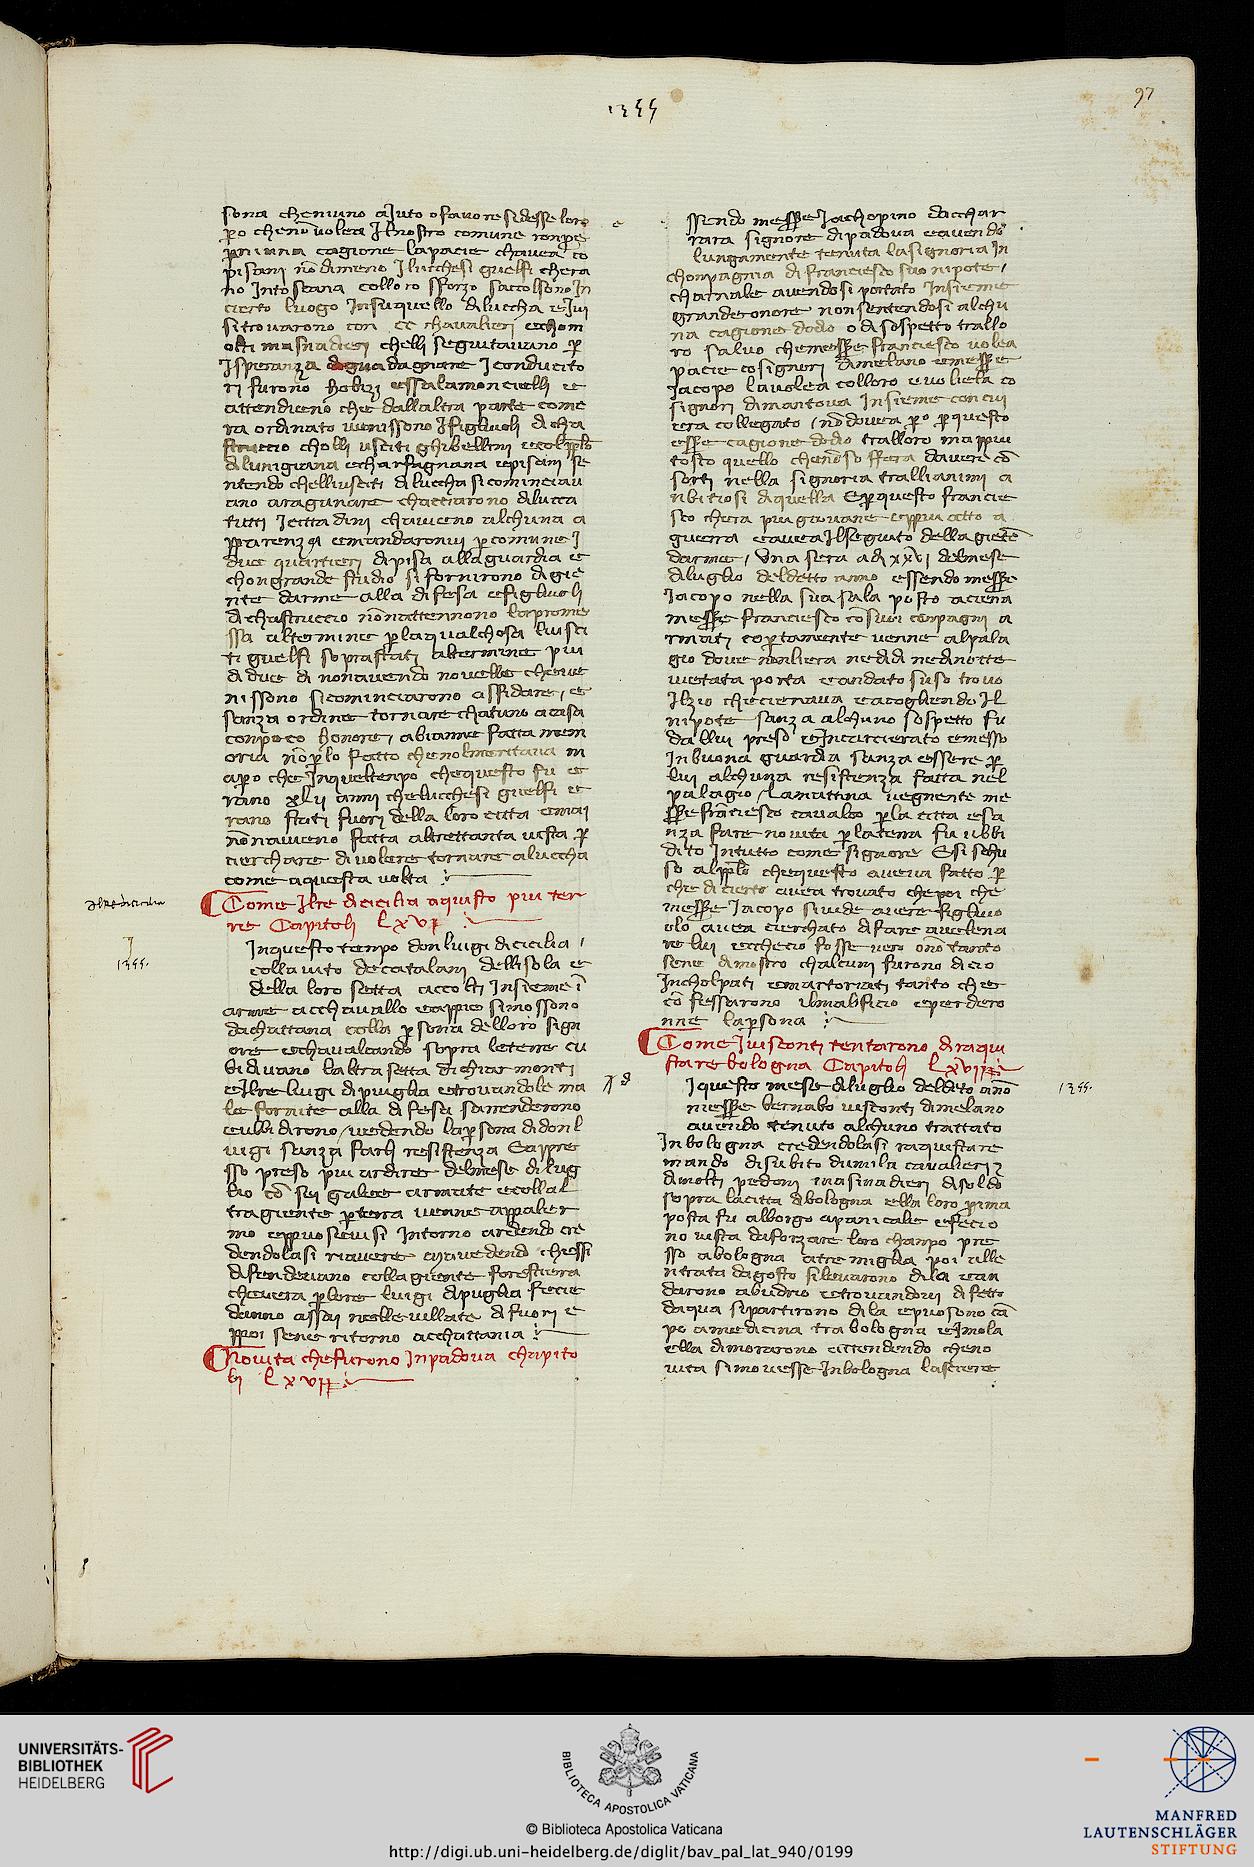 1355
97
sona che niuno aJuto o favore si desse loro
pero che nō volea Jlnostro comune ronpere
per niuna cagione lapacie chavea co
pisani nōdimeno Jlucchesi guelfi chera
no Intoscana colloro sforzo saccolsono In
cierto luogo Insuquello diluccha eJui
sitrovarono con cc chavalieri echom
olti masnadieri chelli seguitavano per
Jsperanza diguadagnare Jconducito
ri furono essalamoncielli e
attendieno che dallaltra parte come
ra ordinato venissono Jfigliuoli di cha
struccio cholli usciti ghibellini
dilunigiana echarfagnana episani se
ntendo chelliusciti diluccha sicominciav
ano aragunare chacciarono dilucca
tutti Jcittadini chavieno alchuna a
pparenza emandaronvi per comune J
due quartieri dipisa allaguardia e
chongrande studio si fornirono di gie
nte darme alla difesa efigliuoli
dichastruccio nōnattennono lapromе
ssa altermine perlaqualchosa liusci
ti guelfi soprastati altermine piu
didue di nonavendo novelle cheve
nissono sicominciarono affidare e
sanza ordine tornare chatuno acasa
conpoco honore, abianne fatta mem
oria nō per lo fatto chenolmeritava m
apero che Inqueltenpo chequesto fu e
rano xlij anni chelucchesi guelfi e
rano stati fuori della loro citta emai
nōnavieno fatta altrettanta vista per
cierchare divolere tornare aluccha
come aquesta volta
Come Ilre dicicilia aquisto piu ter
re Capitoli lxvj
Inquesto tempo donluigi dicicilia
collaiuto decatalani dellisola e
della loro setta accolti Insieme ī
arme acchavallo eappie simossono
dachattana colla persona delloro sign
ore echavalcando sopra leterre cu
bidivano laltra setta dichiarmonti
eJlre luigi dipuglia etrovandole ma
le fornite alla difesa sarrenderono
eubbidirono, vedendo lapersona didonl
uigi sanza farli resistenza Eappre
sso preso piu ardire delmese dilug
lio cō sei galee armate ecollal
tragiente perterra venne appaler
mo eppuosevisi Intorno ardendo cre
dendolasi riavere mavedendo chessi
difendeviano collagiente forestiera
chevera perlore luigi dipuglia fecie
danno assai nellevillate difuori e
ppoi sene ritorno acchattania
Novita chefurono Inpadova chapito
li lxvij
e
ssendo messere Jachopino dacchar
rara signore dipadova eavendo
lungamente tenuta lasignoria In
chonpagnia difranciesco suo nipote
charnale avendosi portato Insieme
grandeonore nonsentendosi alchu
na cagione dodio o disospetto trallo
ro salvo chemessere franciesco volea
pacie cosignori dimelano emessere
Jacopo lavolea colloro evolieta co
signori dimantova Insieme concui
era collegato, nōdovea pero per questo
essere cagione dodio tralloro mappiu
tosto quello chenōso ffera davere cō
sorti nella signoria trallianimi a
nbitiosi diquella Eperquesto francie
sco chera piugiovane eppiu atto a
guerra eavea Ilseguito della giēte
darme, Una sera adi xxvj delmese
diluglio deldetto anno essendo messere
Jacopo nella sua sala posto aciena
messere franciesco cōsuoi conpagni a
rmati copertamente venne alpala
gio dove nonliera nedidi nedinotte
vietata porta eandato suso trovo
Ilzio checienava eacogliendo Il
nipote sanza alchuno sospetto fu
dallui preso eIncarcierato emesso
Inbuona guardia sanza essere per
lui alchuna resistenza fatta nel
palagio, Lamattina vegnente me
ssere franciesco cavalco perla citta esa
nza fare novita perlaterra fu ubbi
dito Intutto come signore Esi schu
so alpopolo chequesto aveva fatto per
che dicierto avea trovato chepoi che
messere Jacopo sivide avere figliuo
olo avea cierchato difare avelena
re lui ecchecio fosse vero onō tanto
sene dimostro chalcuni furono dicio
Incholpati emartoriati tanto che
cōfessarono ilmalificio eperdero
nne lapersona
Come Jvisconti tentarono diraqui
starebologna Capitoli lxviij
Iquesto mese diluglio deldeto anō
messere bernabo visconti dimelano
avendo tenuto alchuno trattato
Inbologna credendolasi raquistare
mando disubito dumila cavalieri
dimolti pedoni masinadieri disoldo
sopra lacitta dibologna ella loro prima
posta fu alborgo apanicale efecio
no vista daforzare loro chanpo pre
sso abologna atre miglia poi alle
ntrata dagosto silevarono dila ean
darono abudrio etrovandovi difetto
daqua sipartirono dila epuosono cā
po amedicina tra bologna eImola
ella dimorarono attendendo cheno
vita simovesse Inbologna lasciere
1355.
1355.
UNIVERSITÄTS-
BIBLIOTHEK
HEIDELBERG
BIBLIOTECA APOSTOLICA VATICANA
© Biblioteca Apostolica Vaticana
http://digi.ub.uni-heidelberg.de/diglit/bav_pal_lat_940/0199
MANFRED
LAUTENSCHLÄGER
STIFTUNG